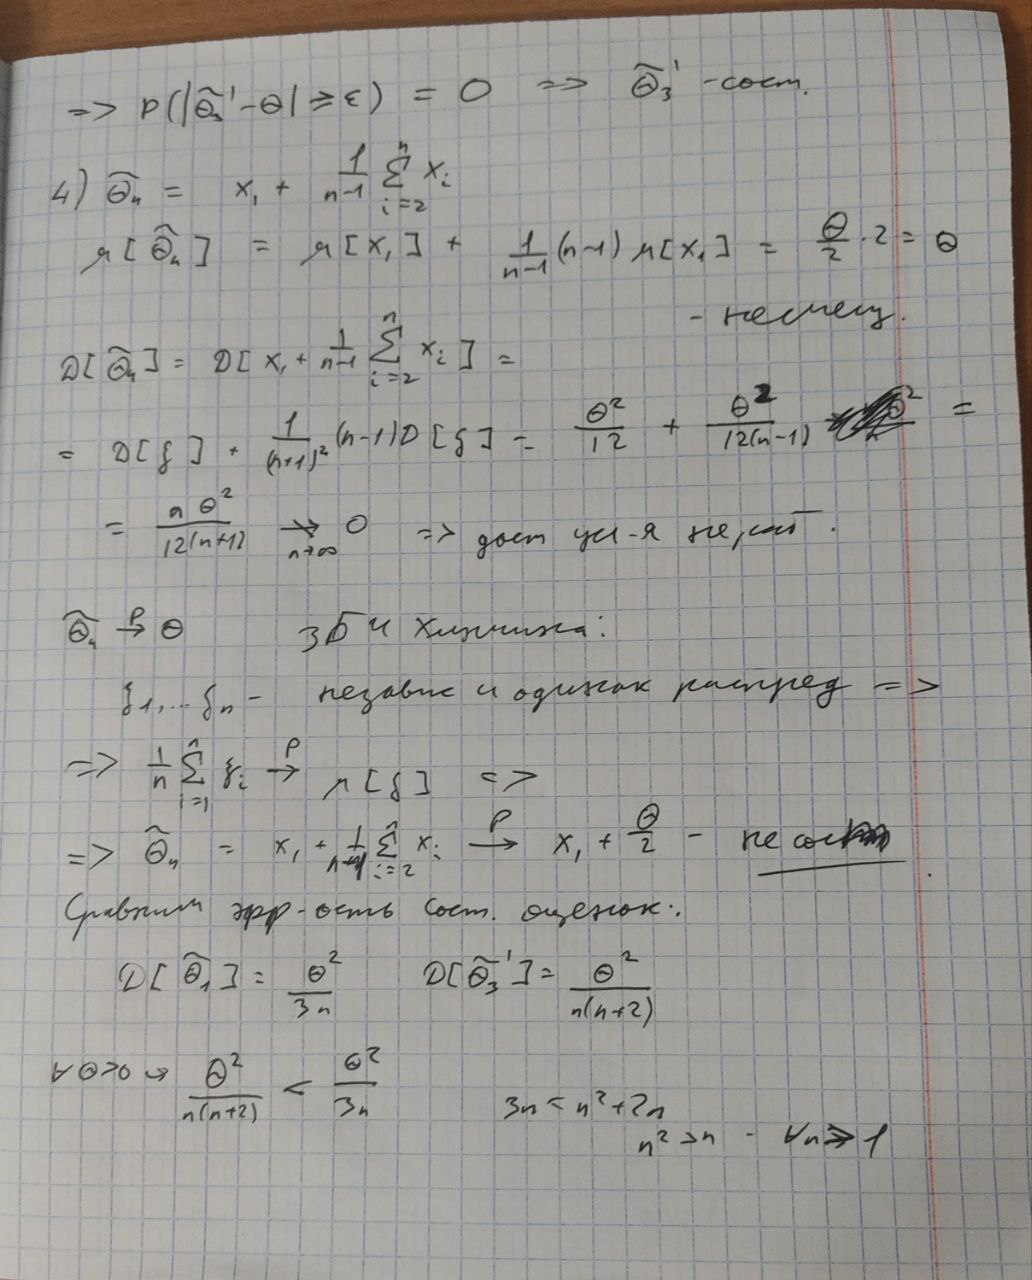 => P(|θ̃₃' - θ| ⩾ ε) = 0 => θ̃₃' - сост.
4) θ̃₄ = x₁ + 1/(n-1) ∑ᵢ₌₂ⁿ xᵢ
M[θ̃₄] = M[x₁] + 1/(n-1) (n-1) M[x₁] = θ/2 · 2 = θ
- несмещ.
D[θ̃₄] = D[x₁ + 1/(n-1) ∑ᵢ₌₂ⁿ xᵢ] =
= D[ξ] + 1/(n+1)² (n-1) D[ξ] = θ²/12 + θ²/(12(n-1)) =
= nθ²/(12(n+1)) ↛ 0 (n→∞) => дост усл-я не
θ̃₄ →ᴾ θ ЗБЧ Хинчина:
ξ₁,... ξₙ - независ и одинак распред =>
=> 1/n ∑ᵢ₌₁ⁿ ξᵢ →ᴾ M[ξ] =>
=> θ̃₄ = x₁ + 1/(n-1) ∑ᵢ₌₂ⁿ xᵢ →ᴾ x₁ + θ/2 - не сост
Сравним эфф-ость сост. оценок:
D[θ̃₁] = θ²/3n D[θ̃₃'] = θ²/(n(n+2))
∀ θ>0 ↪ θ²/(n(n+2)) < θ²/3n
3n < n² + 2n
n² > n - ∀n > 1